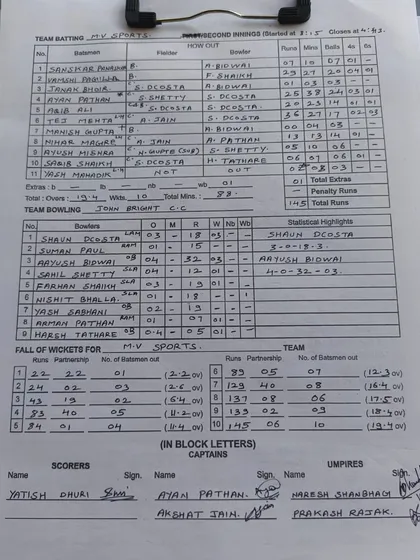 TEAM BATTING M.V SPORTS. FIRST/SECOND INNINGS (Started at 3:15 Closes at 4:43.
HOW OUT
No. Batsmen Fielder Bowler Runs Mins Balls 4s 6s
1 SANSKAR B. A. BIDWAI 07 10 07 01 -
2 VAMSHI B. F. SHAIKH 29 27 20 04 01
3 JANAK BHOIR C. S. DCOSTA A. BIDWAI 01 03 - -
4 AYAN PATHAN C. S. SHETTY S. DCOSTA 25 38 24 03 01
5 AQIB ALI S. DCOSTA S. DCOSTA. 20 23 14 01 01
6 TEJ MEHTA C. A. JAIN S. DCOSTA 36 27 17 02 03
7 MANISH GUPTA B. A. BIDWAI 00 04 03 - -
8 NIHAR C. A. JAIN A. PATHAN 13 13 14 01 -
9 AYUSH MISHRA C. N. GUPTE (SUB) S. SHETTY. 05 10 06 - -
10 SAQIB SHAIKH C. S. DCOSTA H. TATHARE 06 07 06 01 -
11 YASH MAHADIK NOT OUT 08 03 - -
Extras : b - lb - nb - wb 01 01 Total Extras
- Penalty Runs
Total : Overs : 19.4 Wkts. 10 Total Mins. : 88. 145 Total Runs
TEAM BOWLING JOHN BRIGHT C.C
No. Bowlers O M R W Nb Wb Statistical Highlights
1 SHAUN DCOSTA LAM 03 - 18 03 - - SHAUN DCOSTA
2 SUMAN PAUL RAM 01 - 15 - - - 3-0-18-3.
3 AAYUSH BIDWAI OB 04 - 32 03 - - AAYUSH BIDWAI
4 SAHIL SHETTY SLA 04 - 12 01 - - 4-0-32-03.
5 FARHAN SHAIKH SLA 03 - 19 01 - -
6 NISHIT BHALLA. SLA 01 - 18 - - 1
7 YASH SABHANI OB 02 - 19 - - -
8 ARMAN PATHAN RAM 01 - 07 01 - -
9 HARSH TATHARE OB 0.4 - 05 01 - -
FALL OF WICKETS FOR M.V SPORTS. TEAM
Runs Partnership No. of Batsmen out Runs Partnership No. of Batsmen out
1 22 22 01 (2.2 ov) 6 89 05 07 (12.3 ov)
2 24 02 03 (2.6 ov) 7 129 40 08 (16.4 ov)
3 43 19 02 (6.4 ov) 8 137 08 06 (17.5 ov)
4 83 40 05 (11.2 ov) 9 139 02 09 (18.4 ov)
5 84 01 04 (11.4 ov) 10 145 06 10 (19.4 ov)
(IN BLOCK LETTERS)
SCORERS CAPTAINS UMPIRES
Name Sign. Name Sign. Name Sign.
YATISH DHURI AYAN PATHAN. NARESH SHANBHAG
AKSHAT JAIN. PRAKASH RAJAK.